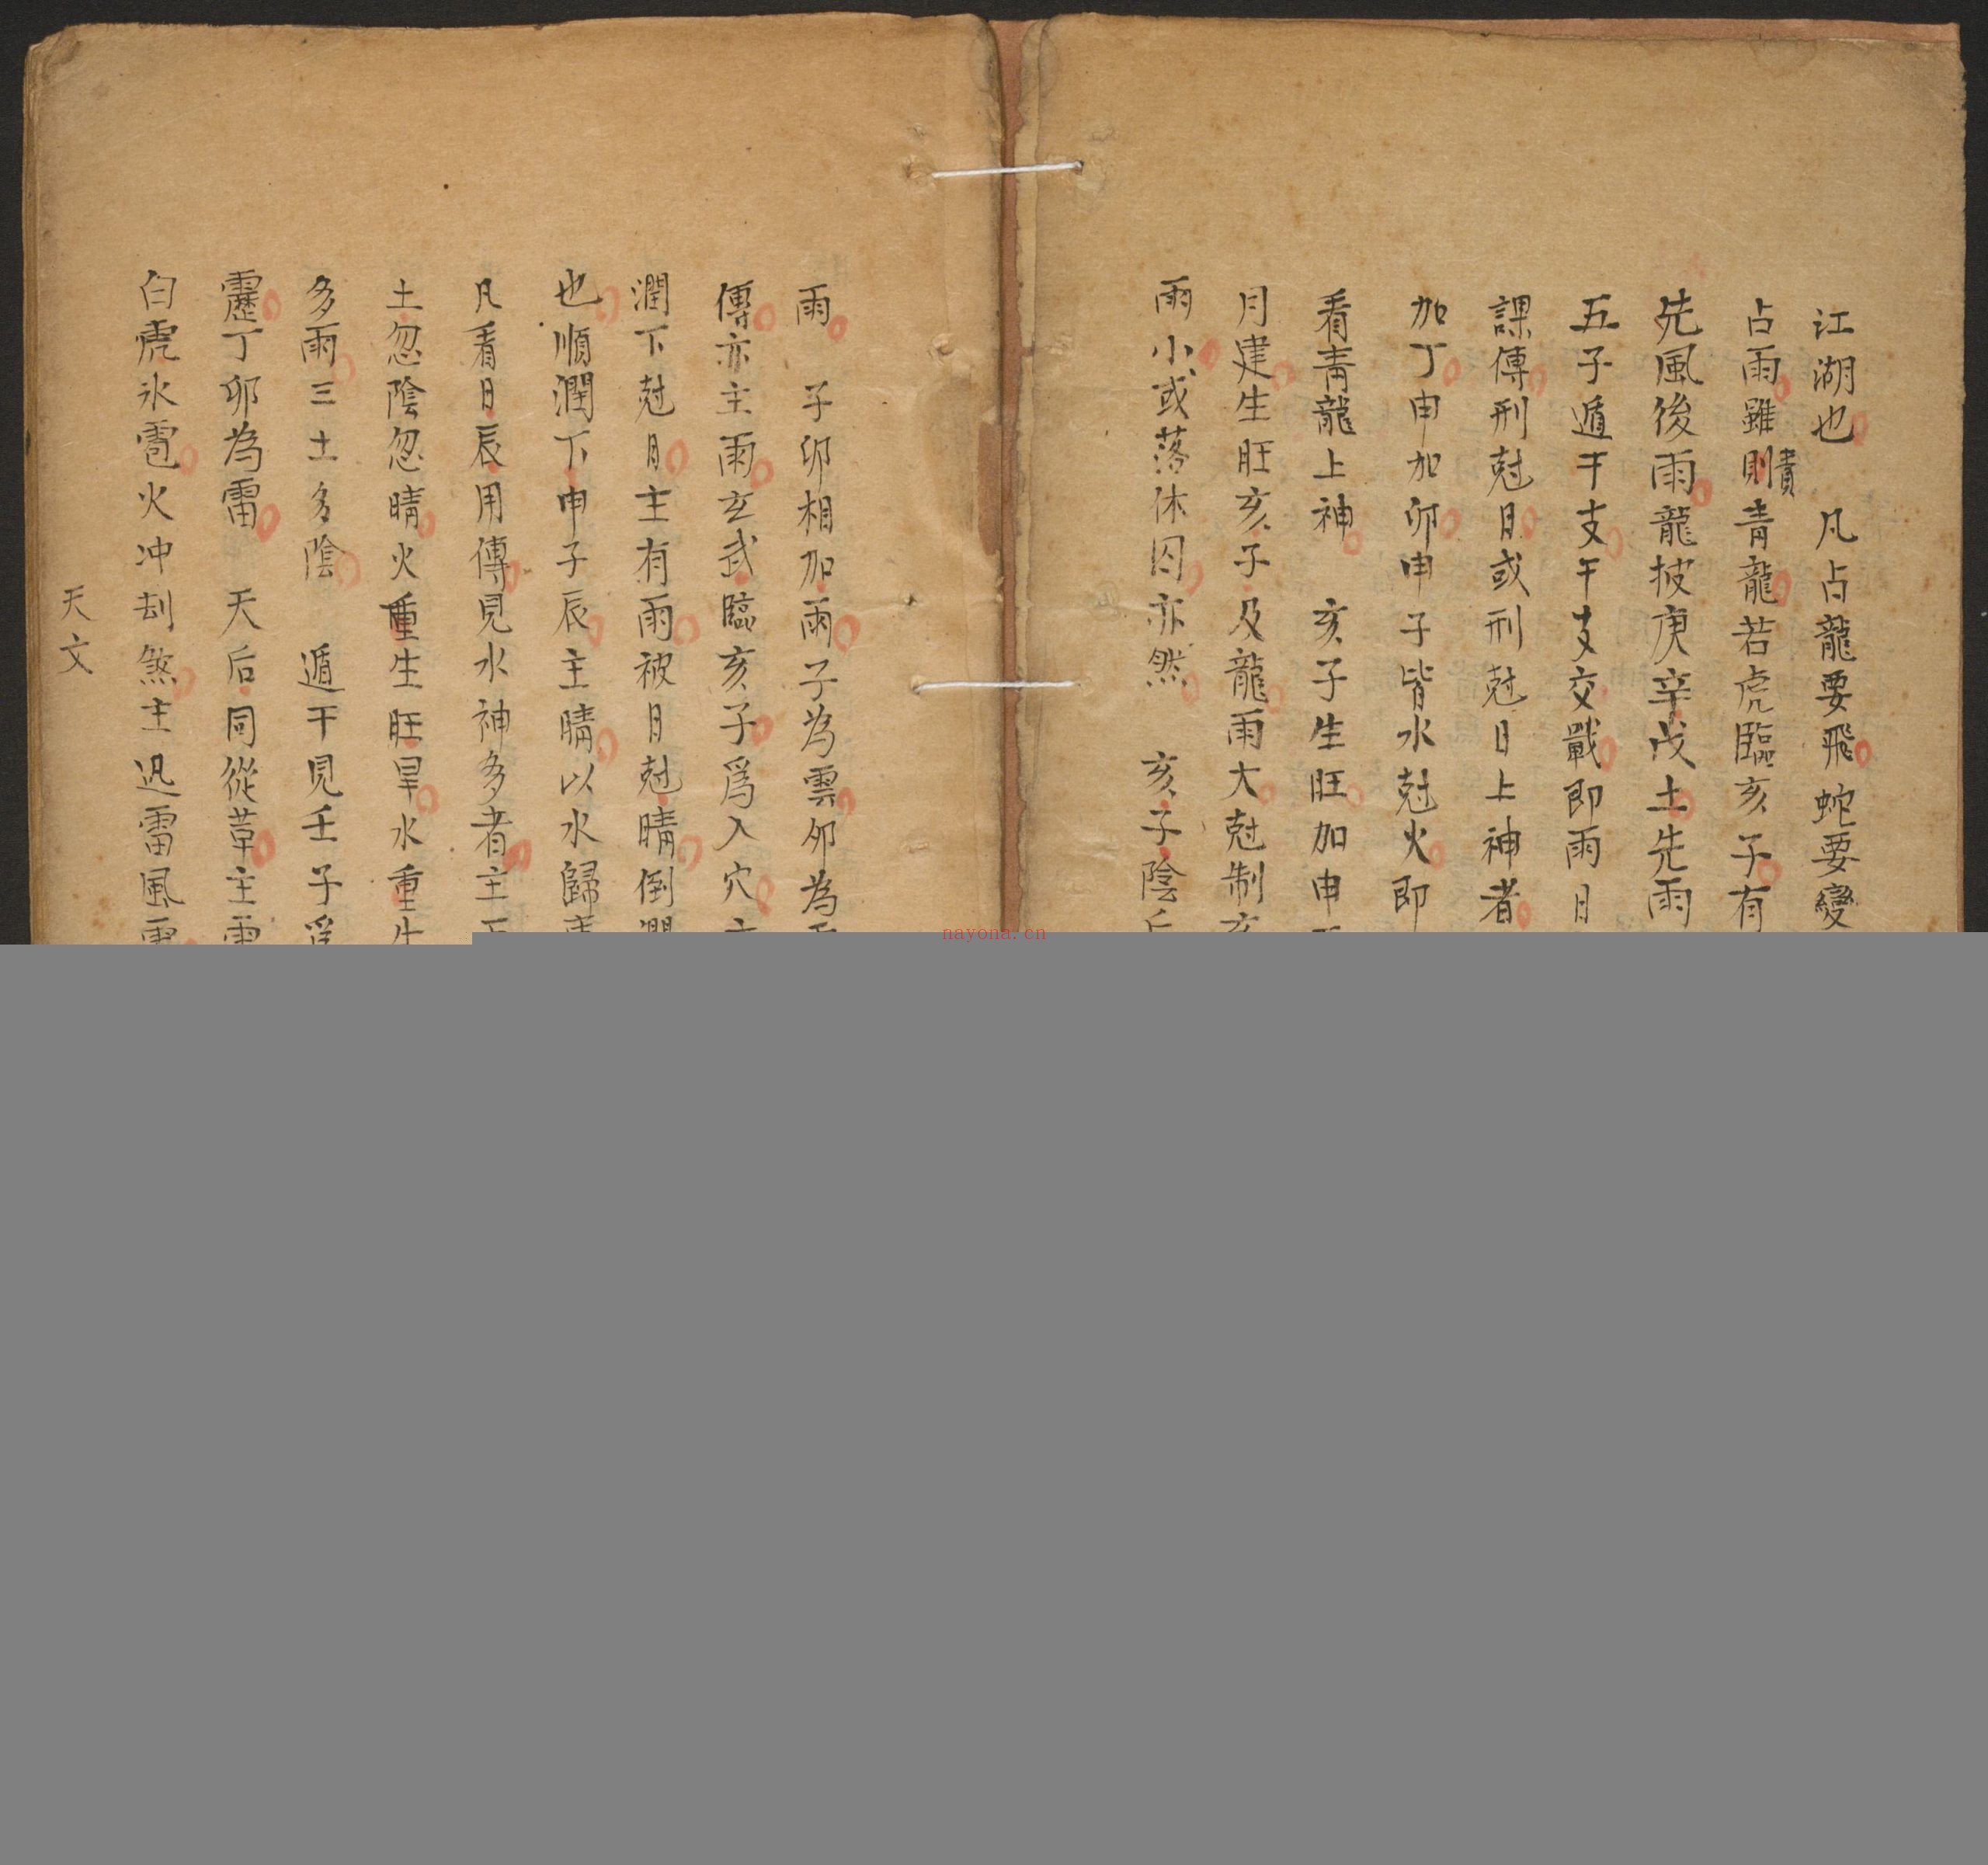 江湖也　凡占龍要飛蛇要變
占雨雖則責青龍若虎臨亥子有
先風後雨龍披庚辛戊土先雨
五子遁干支干支交戰即雨日
課傳刑尅日或刑尅日上神者
加丁申加卯申子皆水尅火即
看青龍上神　亥子生旺加申
月建生旺亥子及龍雨大尅制亥
雨小或落休囚亦然　亥子陰
雨　子卯相加雨子為雲卯為
傳亦主雨玄武臨亥子爲入穴
潤下尅月主有雨被月尅晴倒潤
也順潤下申子辰主晴以水歸
凡看日辰用傳見水神多者主
土忽陰忽晴火重生旺旱水重生
多雨三土多陰　遁干見壬子爲
靂丁卯為雷　天后同從革主
白虎氷雹火冲刦煞主迅雷風
天文
nayona.cn